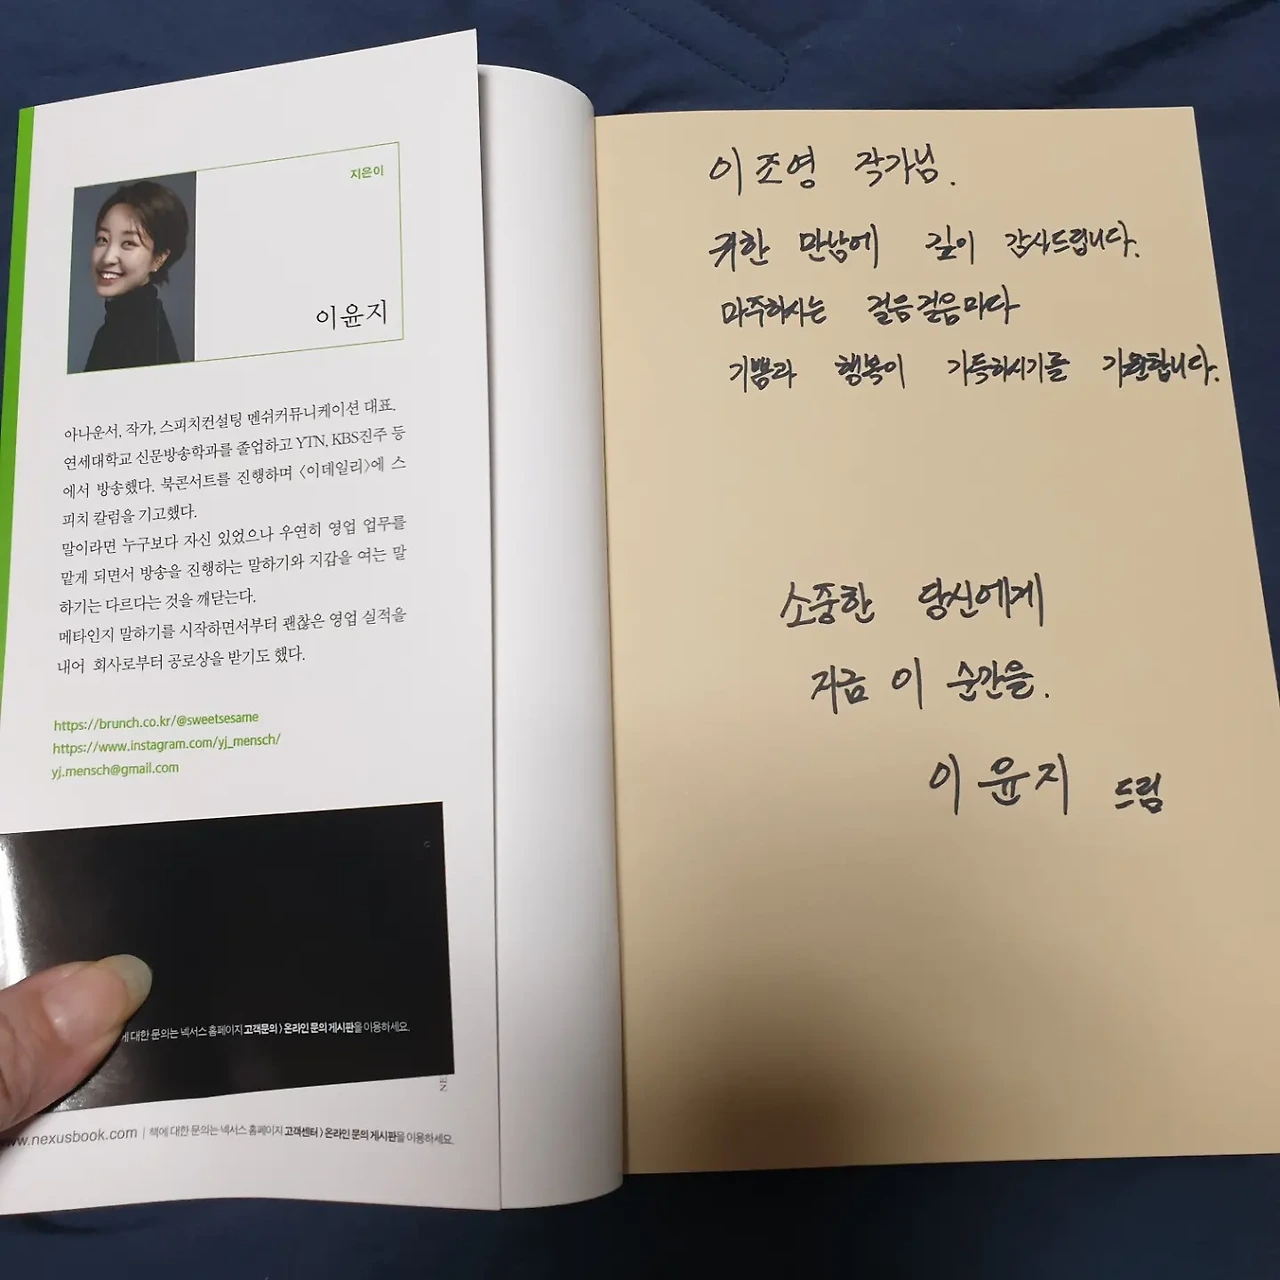 지은이
이윤지
아나운서, 작가, 스피치컨설팅 멘쉬커뮤니케이션 대표.
연세대학교 신문방송학과를 졸업하고 YTN, KBS진주 등
에서 방송했다. 북콘서트를 진행하며 〈이데일리〉에 스
피치 칼럼을 기고했다.
말이라면 누구보다 자신 있었으나 우연히 영업 업무를
맡게 되면서 방송을 진행하는 말하기와 지갑을 여는 말
하기는 다르다는 것을 깨닫는다.
메타인지 말하기를 시작하면서부터 괜찮은 영업 실적을
내어 회사로부터 공로상을 받기도 했다.
https://brunch.co.kr/@sweetsesame
https://www.instagram.com/yj_mensch/
yj.mensch@gmail.com
에 대한 문의는 넥서스 홈페이지 고객문의 > 온라인 문의 게시판을 이용하세요.
NE
www.nexusbook.com | 책에 대한 문의는 넥서스 홈페이지 고객센터 > 온라인 문의 게시판을 이용하세요.
이조영 작가님.
귀한 만남에 깊이 감사드립니다.
마주하시는 걸음걸음마다
기쁨과 행복이 가득하시기를 기원합니다.
소중한 당신에게
지금 이 순간을.
이윤지 드림